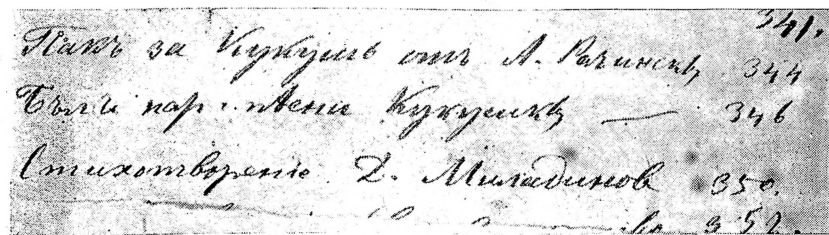 341.
Пакъ за Кукушъ отъ А. Рачинскъ 344
Бълг. нар. пѣсни Кукушкѣ — 346
Стихотворение Д. Миладинов 350.
352.